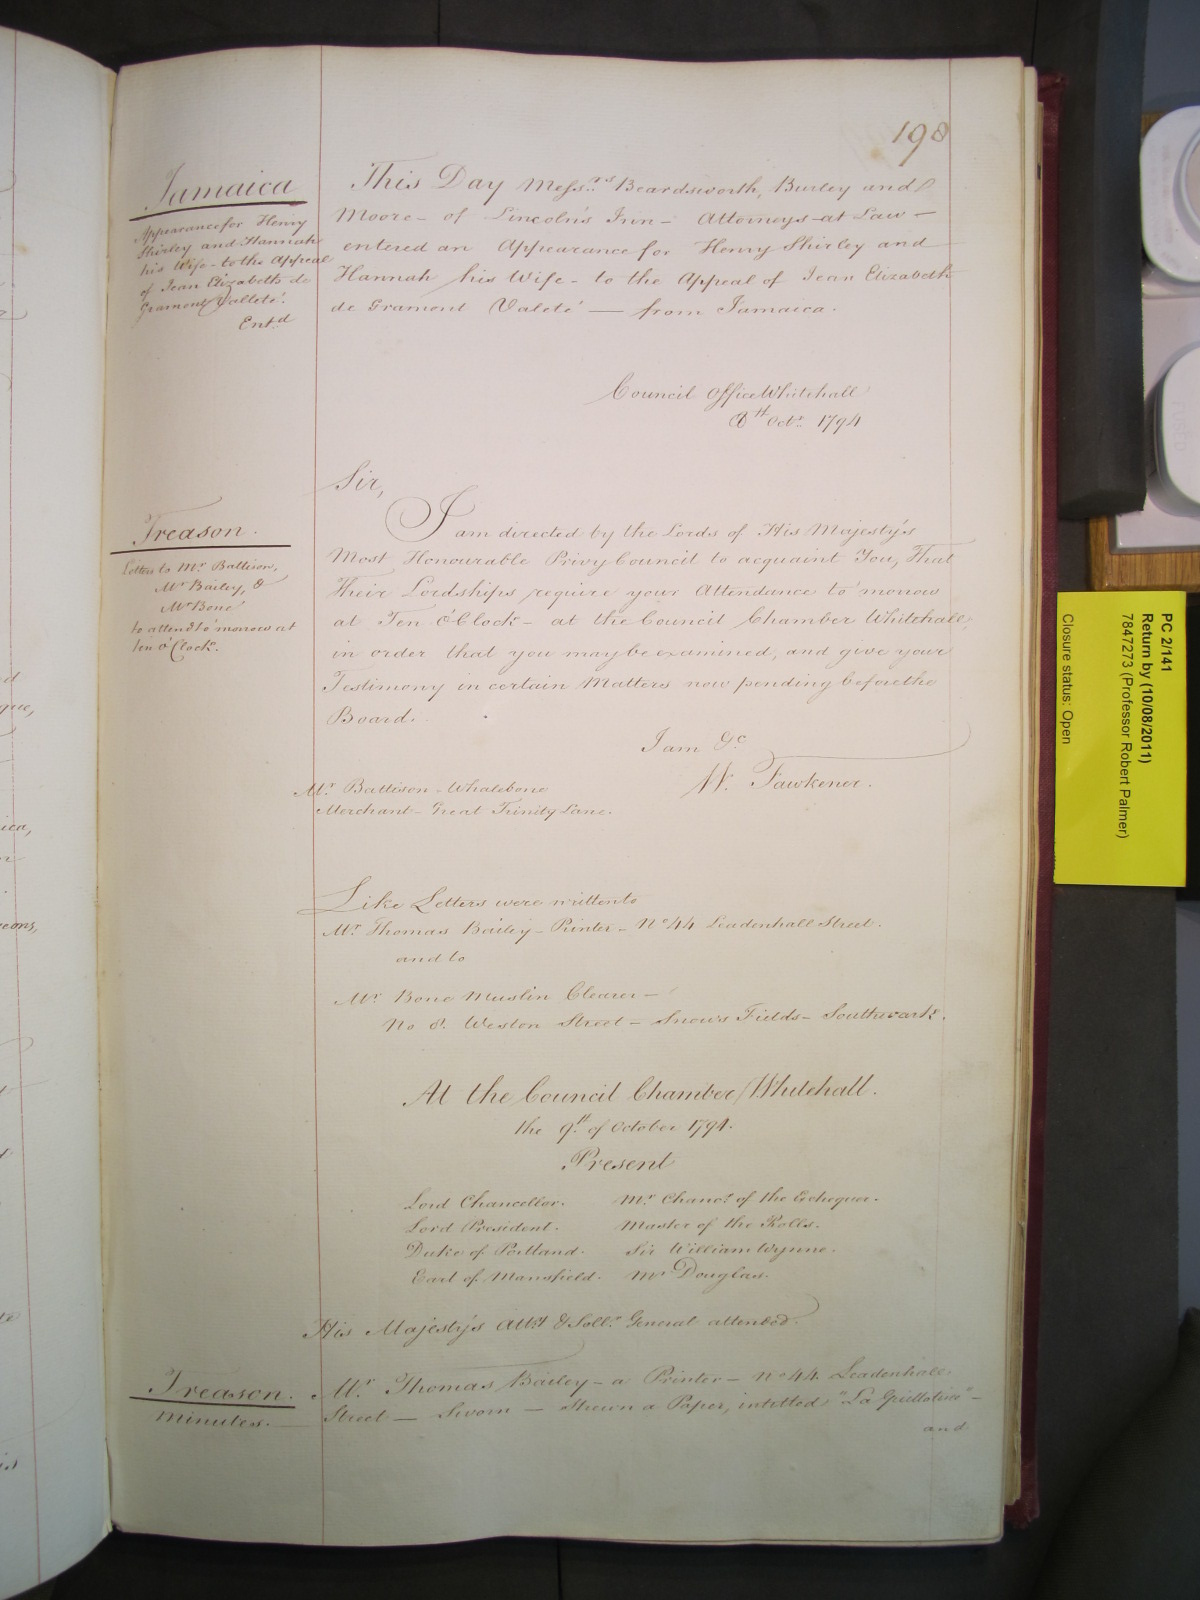 198
Jamaica
Appearance for Henry
Shirley and Hannah
his Wife - to the Appeal
of Jean Elizabeth de
Gramont Valleté.
Entd
This Day Messrs Beardsworth, Burley and
Moore - of Lincoln's Inn - Attorneys at Law -
entered an Appearance for Henry Shirley and
Hannah his Wife - to the Appeal of Jean Elizabeth
de Gramont Valeté — from Jamaica.
Council Office Whitehall
8th Octr. 1794
Sir,
Treason.
Letters to Mr. Battison,
Mr Bailey, &
Mr Bone
to attend to'morrow at
ten o'Clock.
I am directed by the Lords of His Majesty's
Most Honourable Privy Council to acquaint You, That
Their Lordships require your Attendance to morrow
at Ten o'Clock - at the Council Chamber Whitehall,
in order that you may be examined, and give your
Testimony in certain Matters now pending before the
Board.
I am &c
W. Fawkener.
Mr. Battison - Whalebone
Merchant - Great Trinity Lane.
Like Letters were written to
Mr. Thomas Bailey - Printer - No 44 Leadenhall Street.
and to
Mr. Bone Muslin Clearer -
No 8. Weston Street - Snows Fields - Southwark.
At the Council Chamber Whitehall.
the 9th of October 1794.
Present
Lord Chancellor. Mr. Chancr. of the Exchequer.
Lord President. Master of the Rolls.
Duke of Portland. Sir William Wynne.
Earl of Mansfield. Mr Douglas.
His Majesty's Atty & Sollr. General attended.
Treason.
Minutes.
Mr. Thomas Bailey - a Printer - No 44. Leadenhall
Street — Sworn — Shewn a Paper, intitled "La Guillotine" -
and
PC 2/141
Return by (10/08/2011)
7847273 (Professor Robert Palmer)
Closure status: Open